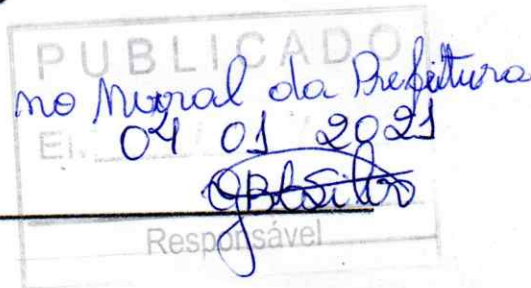 PUBLICADO
no Mural da Prefeitura
Em
04 01 2021
Responsável